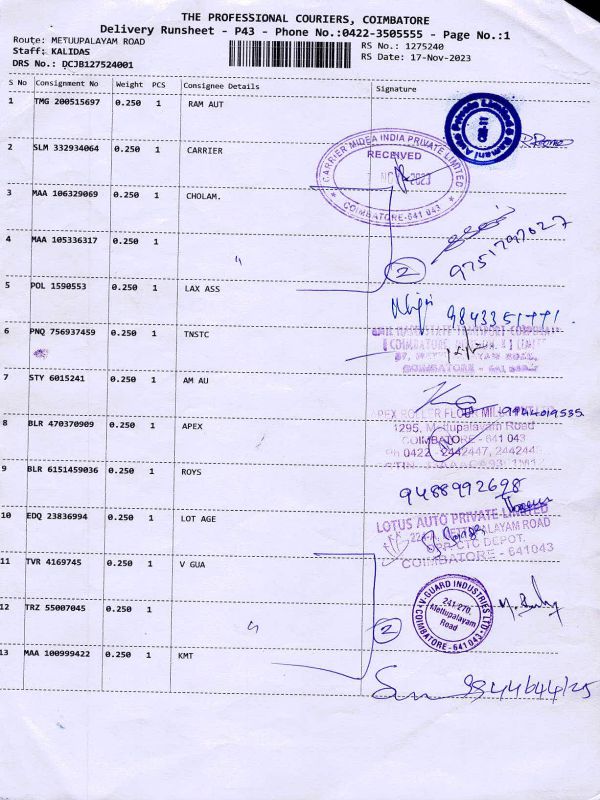 THE PROFESSIONAL COURIERS, COIMBATORE
Delivery Runsheet - P43 - Phone No.:0422-3505555 - Page No.:1
Route: METUUPALAYAM ROAD
Staff: KALIDAS
DRS No.: DCJB127524001
RS No.: 1275240
RS Date: 17-Nov-2023
S No Consignment No Weight PCS Consignee Details Signature
1 TMG 200515697 0.250 1 RAM AUT
2 SLM 332934064 0.250 1 CARRIER
CARRIER MIDEA INDIA PRIVATE LIMITED
RECEIVED
NOV 2023
COIMBATORE-641 043
3 MAA 106329069 0.250 1 CHOLAM.
4 MAA 105336317 0.250 1 "
2
9751797027
5 POL 1590553 0.250 1 LAX ASS
9843351771
6 PNQ 756937459 0.250 1 TNSTC
7 STY 6015241 0.250 1 AM AU
9944019535
8 BLR 470370909 0.250 1 APEX
APEX ROLLER FLOUR MILL
1295, Mettupalayam Road
COIMBATORE - 641 043
Ph 0422 - 2442447, 2442448
9 BLR 6151459036 0.250 1 ROYS
9488992698
10 EDQ 23836994 0.250 1 LOT AGE
LOTUS AUTO PRIVATE LIMITED
METTUPALAYAM ROAD
CTC DEPOT.
COIMBATORE - 641043
11 TVR 4169745 0.250 1 V GUA
V-GUARD INDUSTRIES LTD
241-270,
Mettupalayam
Road
COIMBATORE-641 043
12 TRZ 55007045 0.250 1 "
2
13 MAA 100999422 0.250 1 KMT